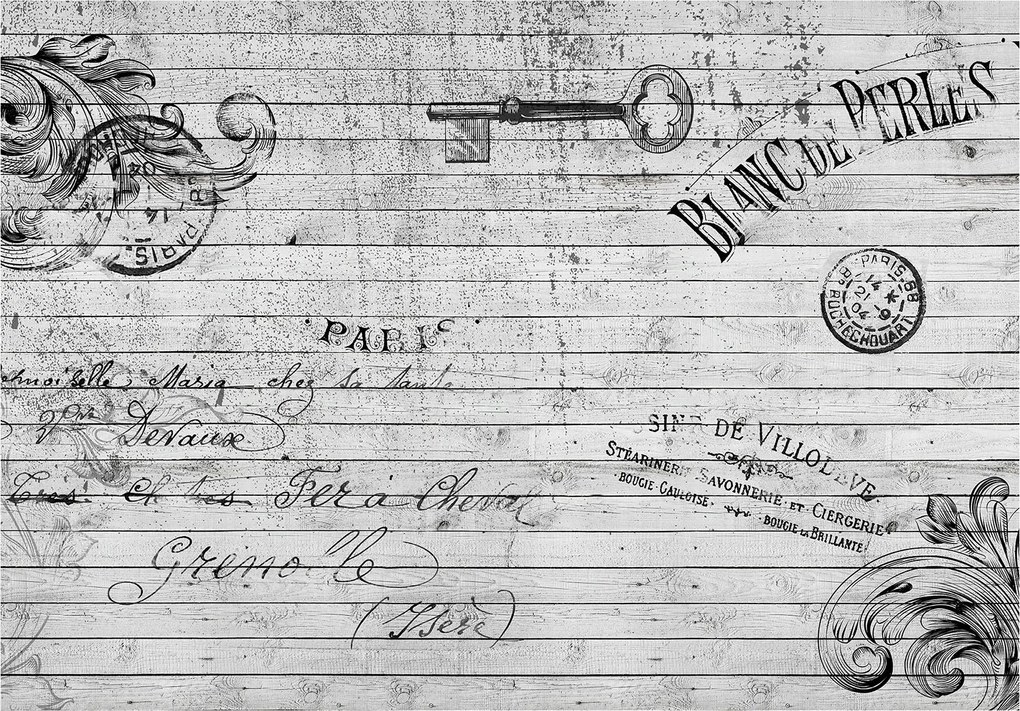 BLANC DE PERLES
PARIS
PARIS-68
14 *
21 9
04
Bd ROCHECHOUART
PARIS
Maria chez sa tante
Vve Devaux
Fer à Cheval
Grenoble
(Isère)
DE VILLOLEVE
STÉARINERIE SAVONNERIE ET CIERGERIE
·BOUGIE GAULOISE·
·BOUGIE LA BRILLANTE·